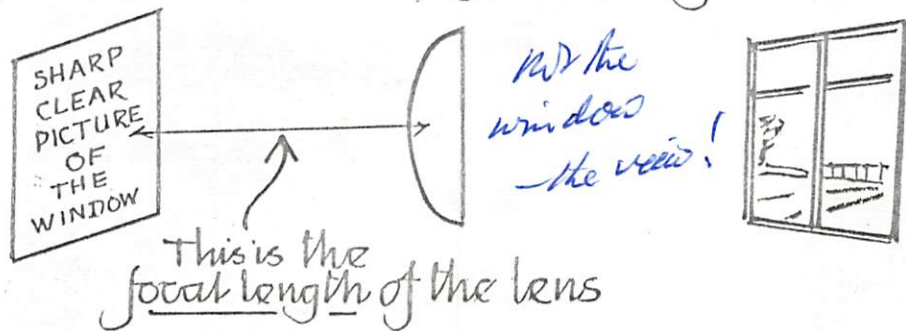 SHARP
CLEAR
PICTURE
OF
THE
WINDOW
not the
window
– the view!
This is the
focal length of the lens